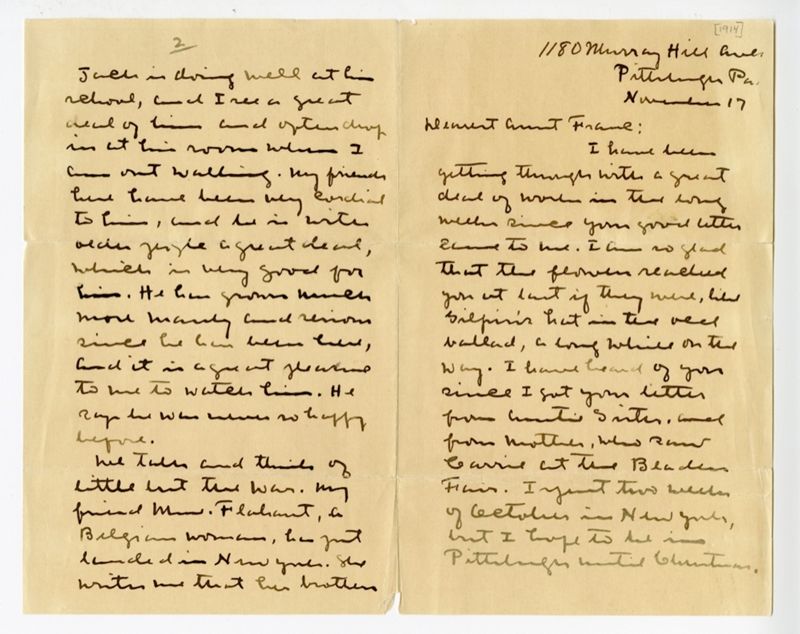 [1914]
1180 Murray Hill Ave.
Pittsburgh Pa.
November 17
Dearest Aunt Franc:
I have been
getting through with a great
deal of work in the long
weeks since your good letter
came to me. I am so glad
that the flowers reached
you at last if they were, like
Gilpin's hat in the old
ballad, a long while on the
way. I have heard of you
since I got your letter
from Auntie Sister, and
from Mother, who saw
Carrie at the Bladen
Fair. I spent two weeks
of October in New York,
but I hope to be in
Pittsburgh until Christmas.
2
Jack is doing well at his
school, and I see a great
deal of him and often drop
in at his room when I
am out walking. My friends
here have been very cordial
to him, and he is with
older people a great deal,
which is very good for
him. He has grown much
more manly and serious
since he has been here,
and it is a great pleasure
to me to watch him. He
says he was never so happy
before.
We talk and think of
little but the war. My
friend Mme. Flahant, a
Belgian woman, has just
landed in New York. She
writes me that her brothers